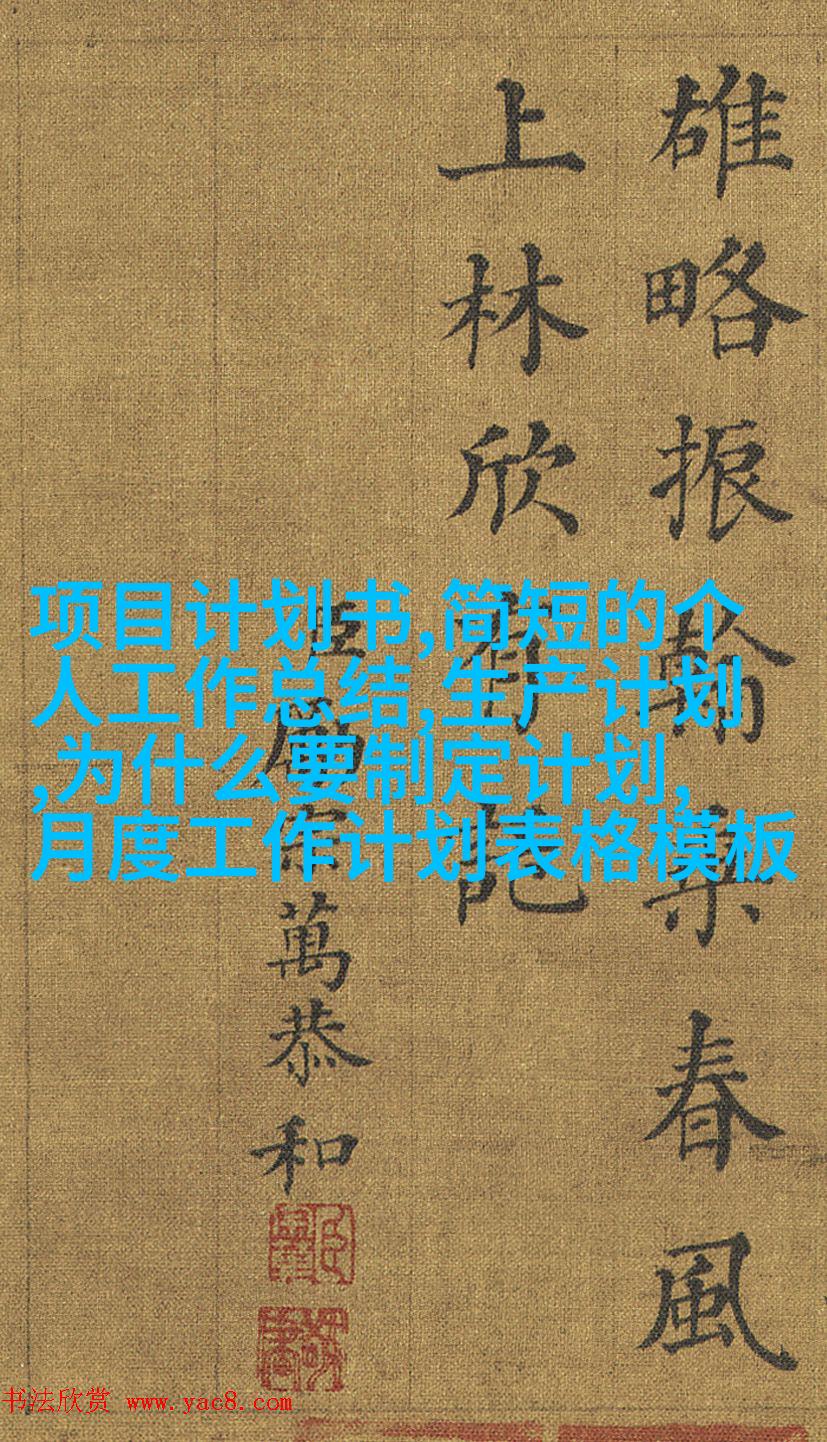 雄略振翰乘春風
上林欣有託
臣勵宗萬恭和
项目计划书,简短的个
人工作总结,生产计划
,为什么要制定计划,
月度工作计划表格模板
书法欣赏 www.yac8.com